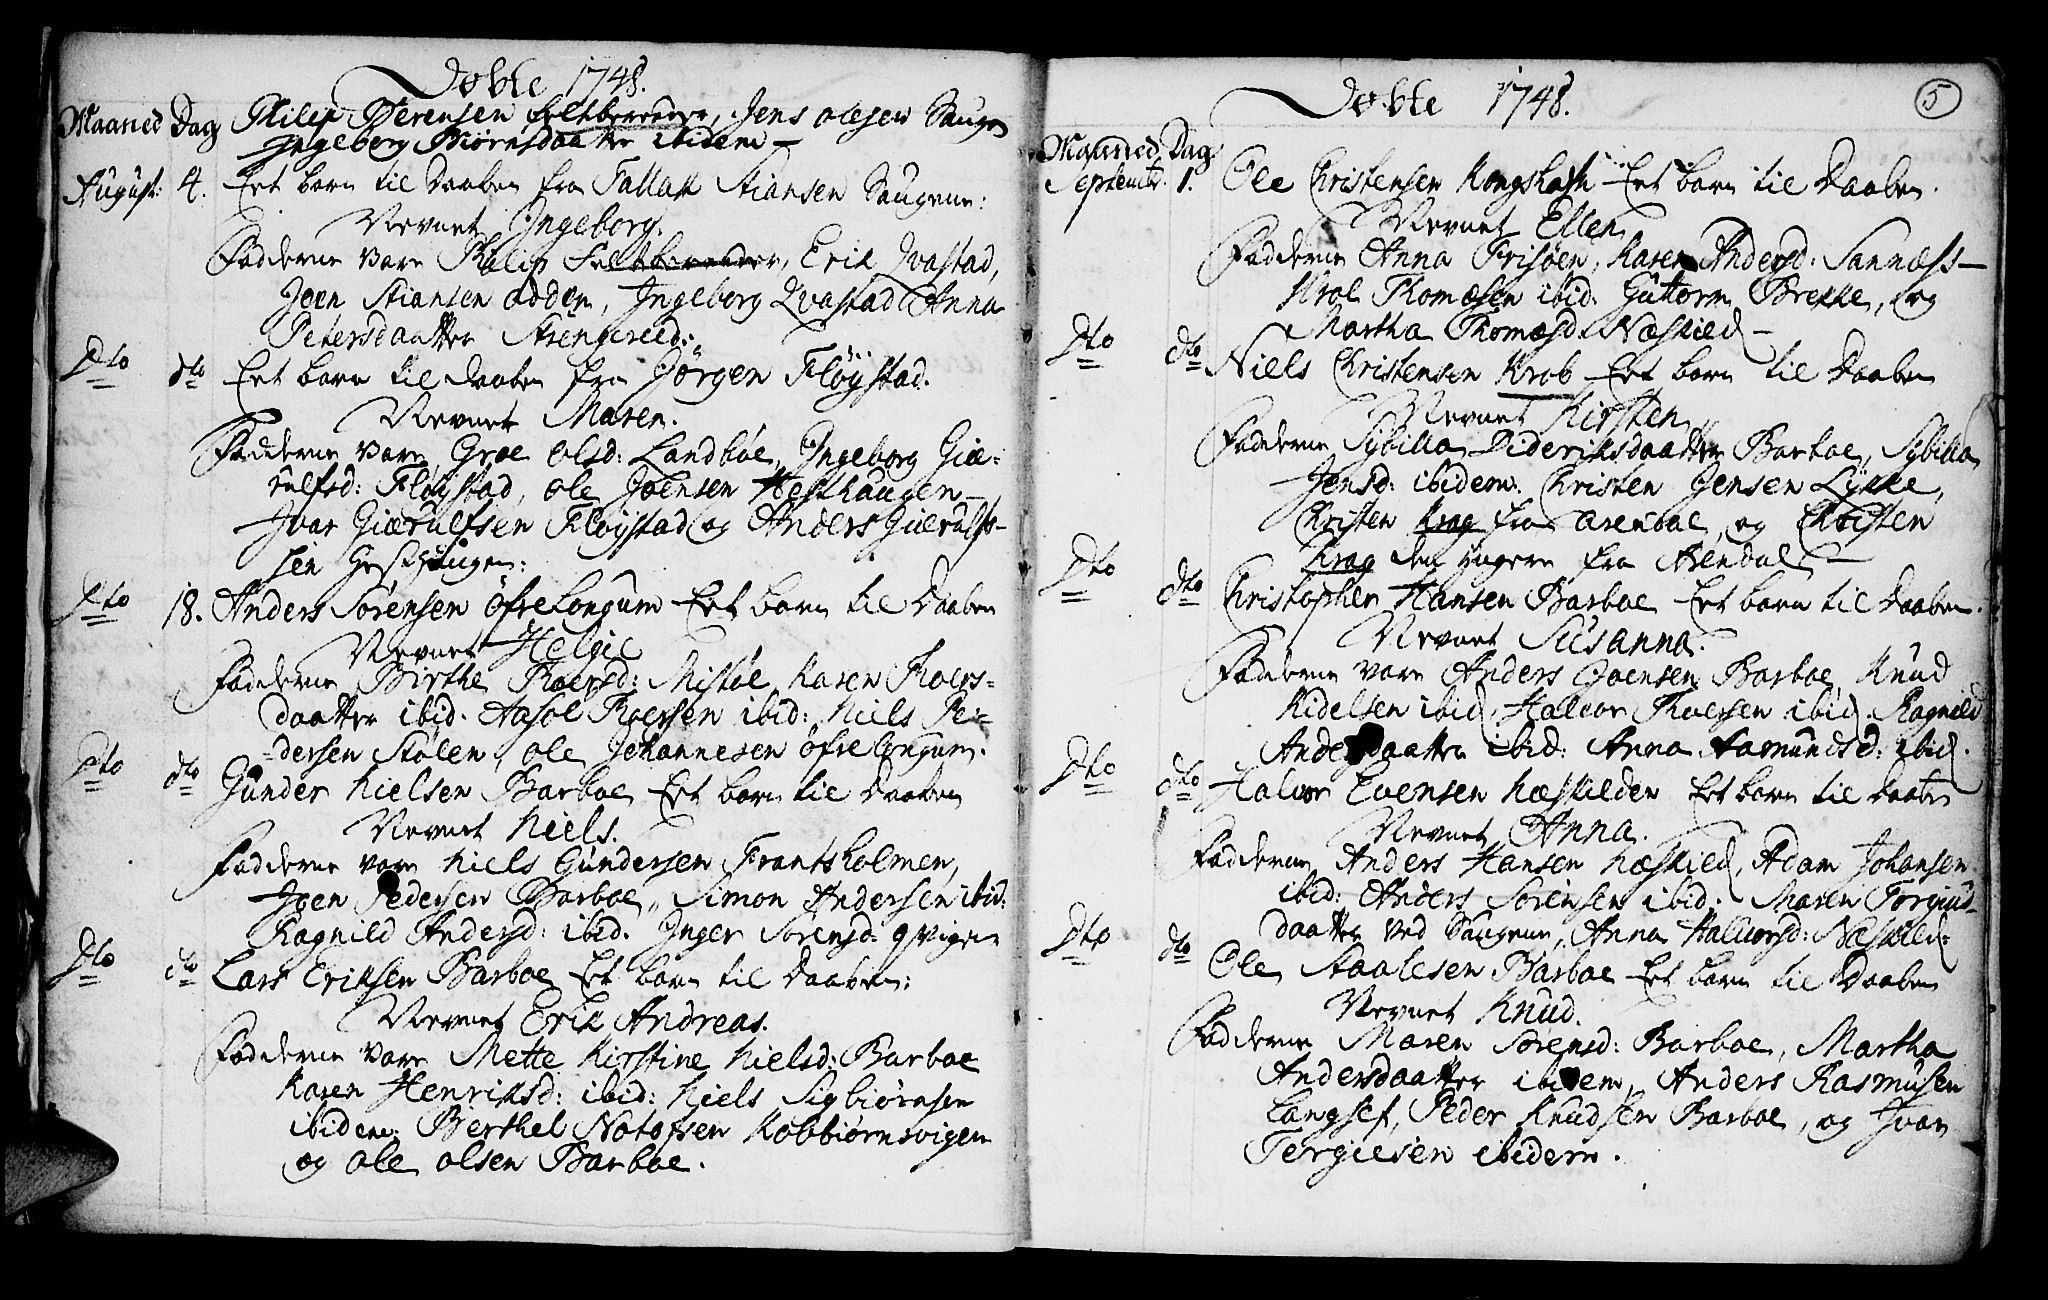 Døbte 1748.
Maaned Dag Philip Sørensen Feltbereeder, Jens Olesen Saugen
Ingeborg Biørnsdaatter ibidem —
August: 4. Eet barn til Daaben fra Tallak Stiansen Saugene:
Nevnet Ingeborg.
Fadderne vare Philip Feltbereeder, Erik Qvastad,
Joen Stiansen odden, Ingeborg Qvastad Anna
Petersdaatter Strengereed:
Dto dto Eet barn til Daaben fra Jörgen Flöystad.
Nevnet Maren.
Fadderne vare Groe Olsd: Landböe, Ingeborg Giæ-
rulfsd: Flöystad, Ole Joensen Hesthaugen
Ivar Giærulfsen Flöystad og Anders Giærulf-
sen Hesthaugen:
Dto 18. Anders Sörensen öfre Longum Eet barn til Daaben
Nevnet Helgie
Fadderne Birthe Roersd: Mistöe, Karen Roers-
daatter ibid. Aasoe Roersen ibid: Niels Pe-
dersen Stölen, Ole Johannesen öfre Longum.
Dto dto Gunder Nielsen Barboe Eet barn til Daaben
Nevnet Niels.
Fadderne vare Niels Gundersen Frantsholmen,
Joen Pedersen Barboe, Simon Andersen ibid:
Ragnild Andersd: ibid. Inger Sörensd: qvigen
Dto dto Lars Eriksen Barboe Eet barn til Daaben:
Nevnet Erik Andreas.
Fadderne vare Mette Kirstine Nielsd: Barboe
Karen Henriksd: ibid: Niels Sigbiörnsen
ibidem: Berthel Notofsen Kobbiörnsvigen
og Ole Olsen Barboe.
Døbte 1748.
5
Maaned Dag
Septembr. 1. Ole Christensen Kongshavn Eet barn til Daaben.
Nevnet Ellen
Fadderne Anna Frisöen, Karen Andersd: Sannæss-
Krol Thomæsen ibid. Guttorm Brekke, og
Martha Thomæsd. Næskiled —
Dto dto Niels Christensen Krob Eet barn til Daaben
Nevnet Kirsten
Fadderne Sybilla Dideriksdaatter Barboe, Sybilla
Jensd: ibidem. Christen Jensen Lykke,
Christen Krag fra Arendal, og Christen
Krag den yngere fra Arendal —
Dto dto Christopher Hansen Barboe Eet barn til Daaben.
Nevnet Susanna.
Fadderne vare Anders Joensen Barboe, Knud
Kidelsen ibid, Halvor Roersen ibid. Ragnild
Andersdaatter ibid: Anna Aamundsd: ibid.
Dto dto Halvor Evensen Næskilden Eet barn til Daaben
Nevnet Anna.
Fadderne Anders Hansen Næskiled, Adam Johansen
ibid: Anders Sörensen ibid. Maren Torgiuds-
daatter ved Saugene, Anna Halvorsd: Næskiled:
Dto dto Ole Staalesen Barboe Eet barn til Daaben
Nevnet Knud.
Fadderne Maren Sörensd: Barboe, Martha
Andersdaatter ibidem, Anders Rasmusen
Langsef, Peder Knudsen Barboe, og Ivar
Tergiesen ibidem.